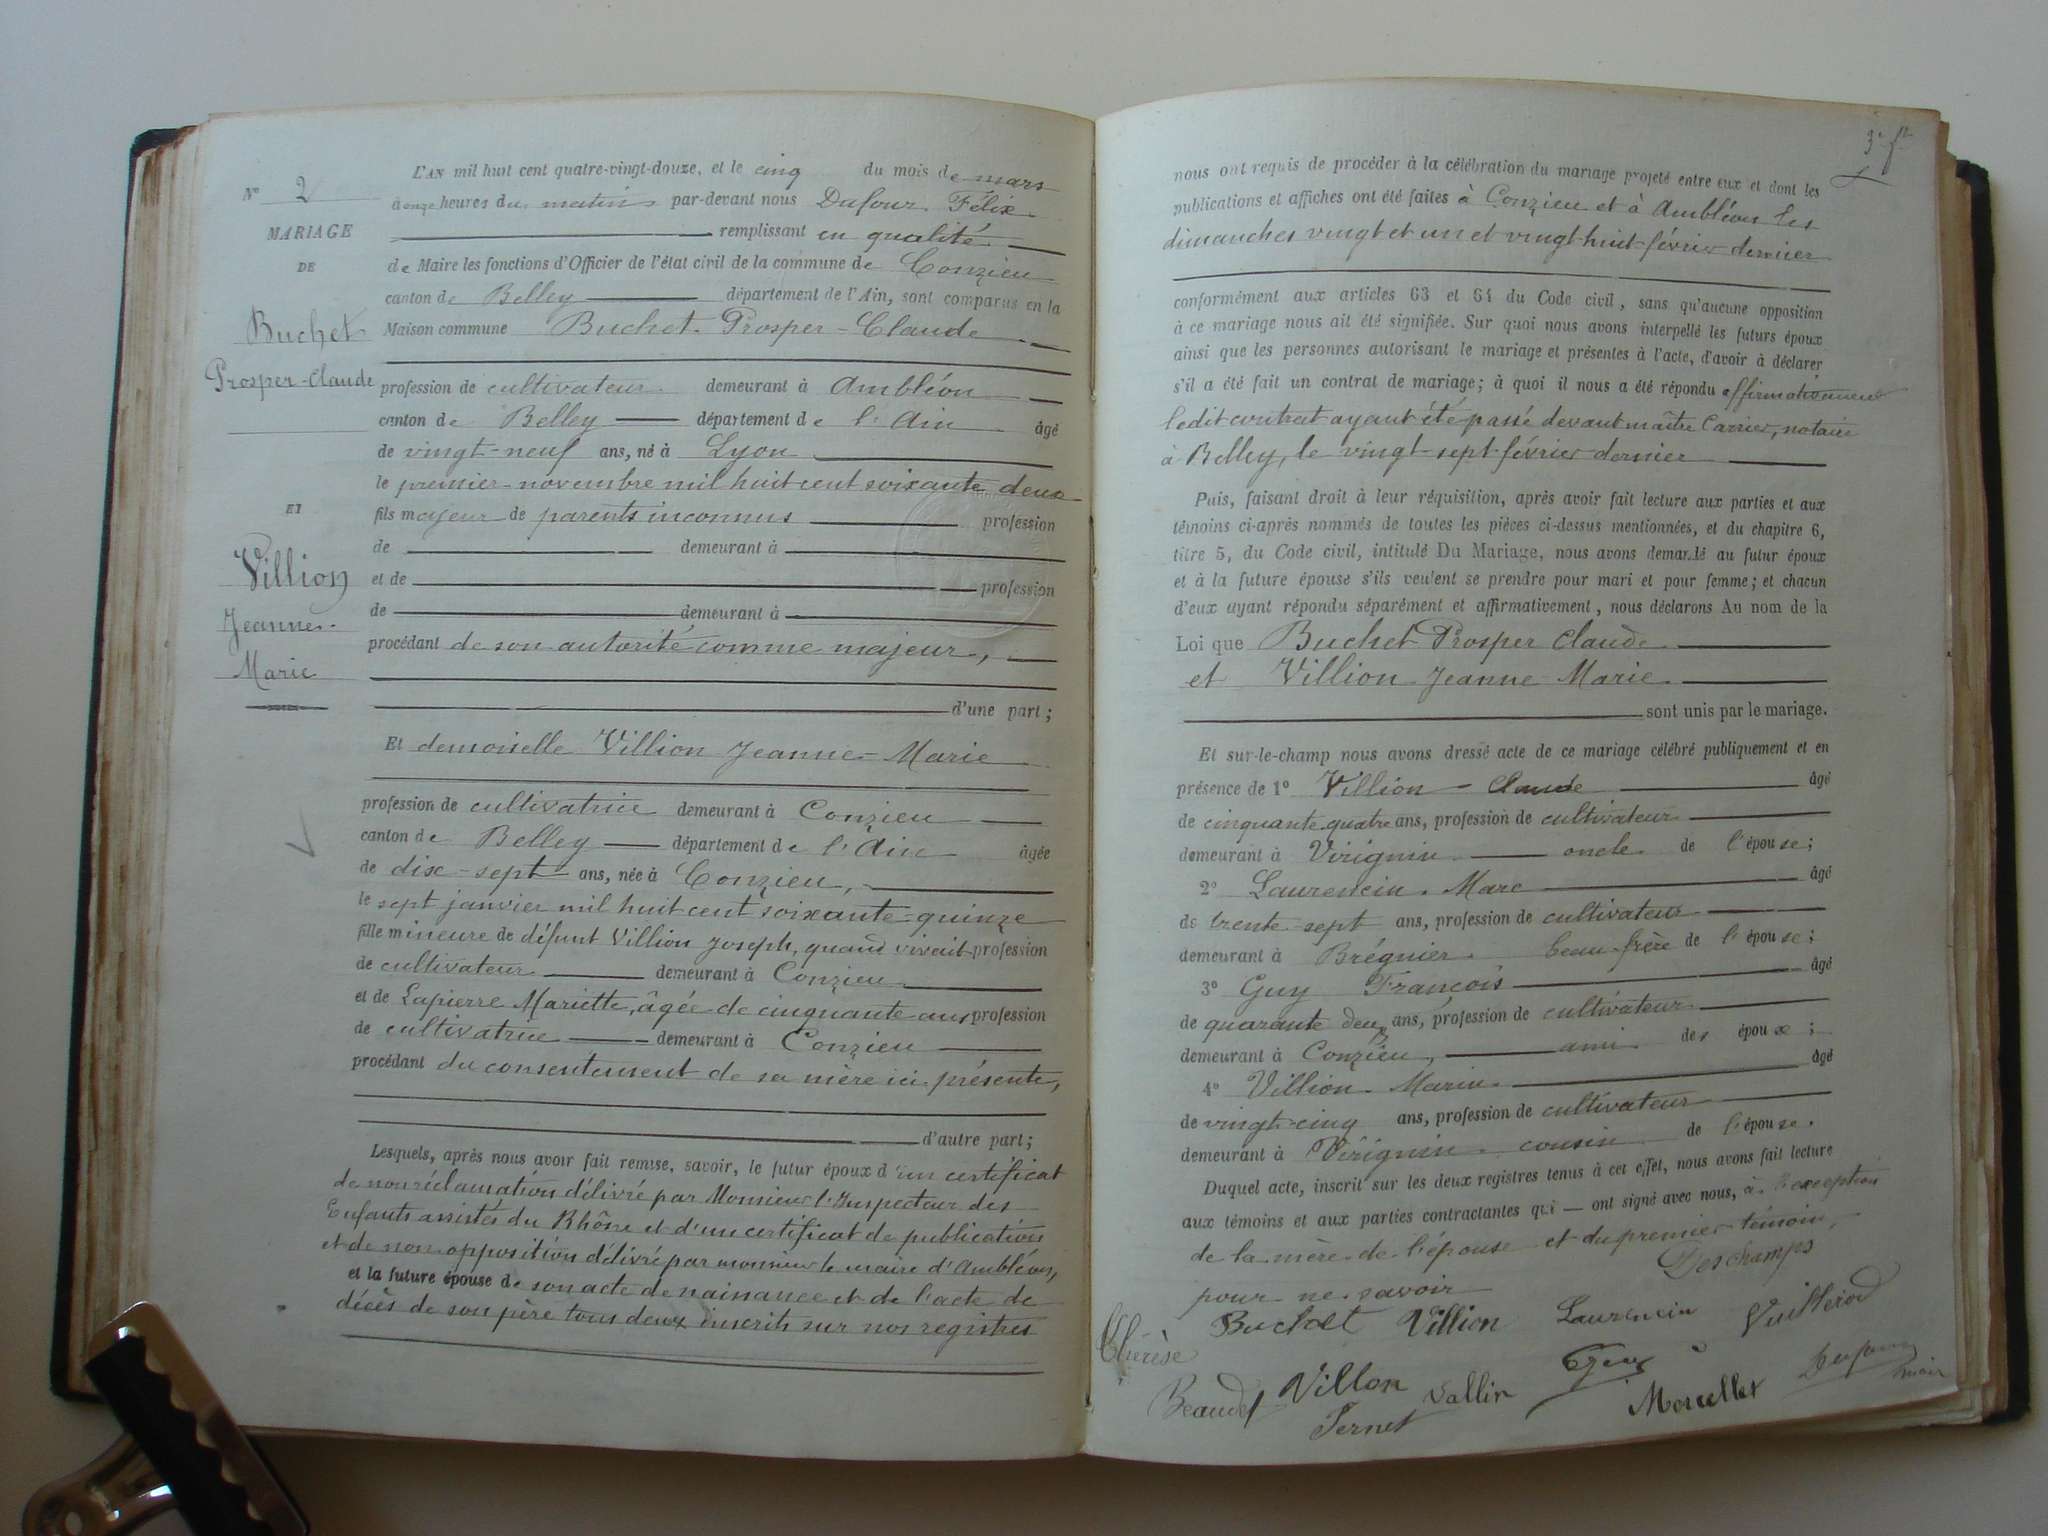 N° 2
MARIAGE
DE
Buchet
Prosper-Claude
ET
Villion
Jeanne-
Marie
L'AN mil huit cent quatre-vingt-douze, et le cinq du mois de mars
à onze heures du matin par-devant nous Dufour Félix
remplissant en qualité
de Maire les fonctions d'Officier de l'état civil de la commune de Conzieu
canton de Belley département de l'Ain, sont comparus en la
Maison commune Buchet Prosper-Claude
profession de cultivateur demeurant à Ambléon
canton de Belley département de l'Ain âgé
de vingt-neuf ans, né à Lyon
le premier novembre mil huit cent soixante deux
fils majeur de parents inconnus profession
de demeurant à
et de profession
de demeurant à
procédant de son autorité comme majeur,
d'une part;
Et demoiselle Villion Jeanne-Marie
profession de cultivatrice demeurant à Conzieu
canton de Belley département de l'Ain âgée
de dix-sept ans, née à Conzieu,
le sept janvier mil huit cent soixante-quinze
fille mineure de défunt Villion Joseph, quand vivait profession
de cultivateur demeurant à Conzieu
et de Lapierre Mariette, âgée de cinquante ans profession
de cultivatrice demeurant à Conzieu
procédant du consentement de sa mère ici présente,
d'autre part;
Lesquels, après nous avoir fait remise, savoir, le futur époux d'un certificat
de non réclamation délivré par Monsieur l'Inspecteur des
Enfants assistés du Rhône et d'un certificat de publication
et de non opposition délivré par monsieur le maire d'Ambléon,
et la future épouse de son acte de naissance et de l'acte de
décès de son père tous deux inscrits sur nos registres
nous ont requis de procéder à la célébration du mariage projeté entre eux et dont les
publications et affiches ont été faites à Conzieu et à Ambléon les
dimanches vingt et un et vingt-huit février dernier
conformément aux articles 63 et 64 du Code civil, sans qu'aucune opposition
à ce mariage nous ait été signifiée. Sur quoi nous avons interpellé les futurs époux
ainsi que les personnes autorisant le mariage et présentes à l'acte, d'avoir à déclarer
s'il a été fait un contrat de mariage; à quoi il nous a été répondu affirmativement
ledit contrat ayant été passé devant maître Carrier, notaire
à Belley, le vingt-sept février dernier
Puis, faisant droit à leur réquisition, après avoir fait lecture aux parties et aux
témoins ci-après nommés de toutes les pièces ci-dessus mentionnées, et du chapitre 6,
titre 5, du Code civil, intitulé Du Mariage, nous avons demandé au futur époux
et à la future épouse s'ils veulent se prendre pour mari et pour femme; et chacun
d'eux ayant répondu séparément et affirmativement, nous déclarons Au nom de la
Loi que Buchet Prosper Claude
et Villion Jeanne Marie
sont unis par le mariage.
Et sur-le-champ nous avons dressé acte de ce mariage célébré publiquement et en
présence de 1° Villion - Claude âgé
de cinquante quatre ans, profession de cultivateur
demeurant à Virignin oncle de l'épouse;
2° Laurencin Marc âgé
de trente-sept ans, profession de cultivateur
demeurant à Brégnier beau-frère de l'épouse;
3° Guy François âgé
de quarante deux ans, profession de cultivateur
demeurant à Conzieu, ami des époux;
4° Villion Marin âgé
de vingt-cinq ans, profession de cultivateur
demeurant à Virignin cousin de l'épouse.
Duquel acte, inscrit sur les deux registres tenus à cet effet, nous avons fait lecture
aux témoins et aux parties contractantes qui — ont signé avec nous, à l'exception
de la mère de l'épouse et du premier témoin,
pour ne savoir Deschamps
Buchet Villion Laurencin Vuillerod
Thérèse
Beaudet Villon Vallin Guy Dufour maire
Pernet Morcellet